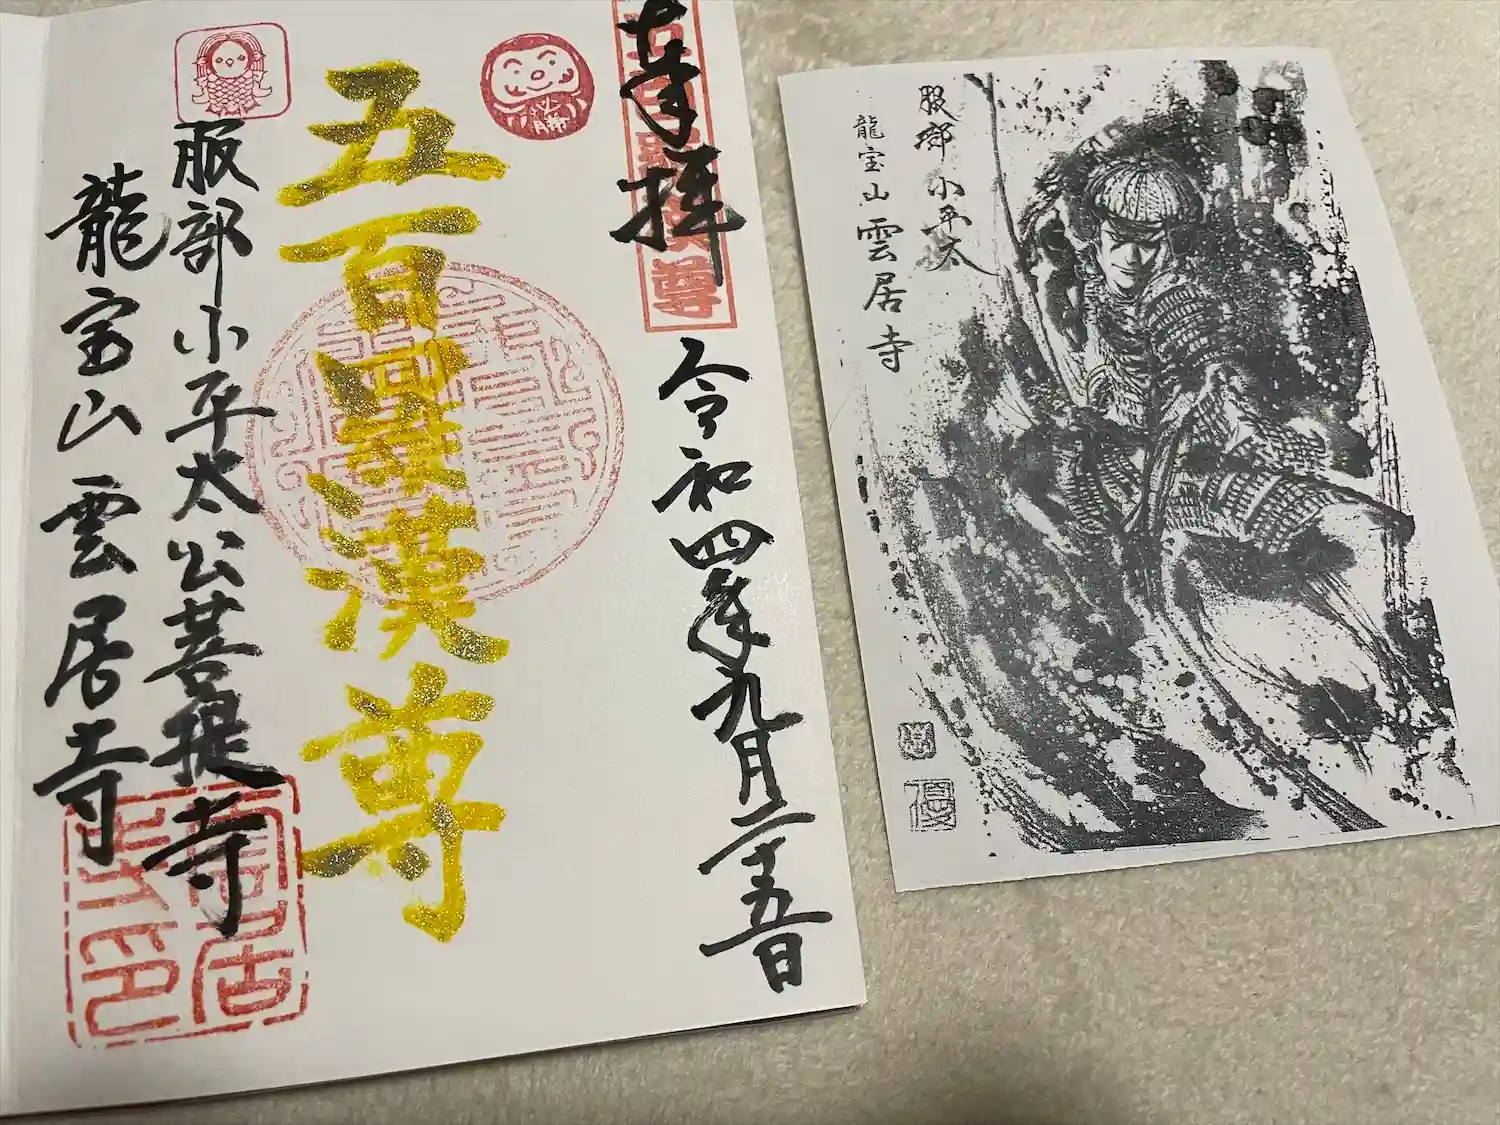 奉拝
令和四年九月二十五日
五百羅漢尊
服部小平太公菩提寺
龍宝山雲居寺
必勝
服部小平太
龍宝山雲居寺